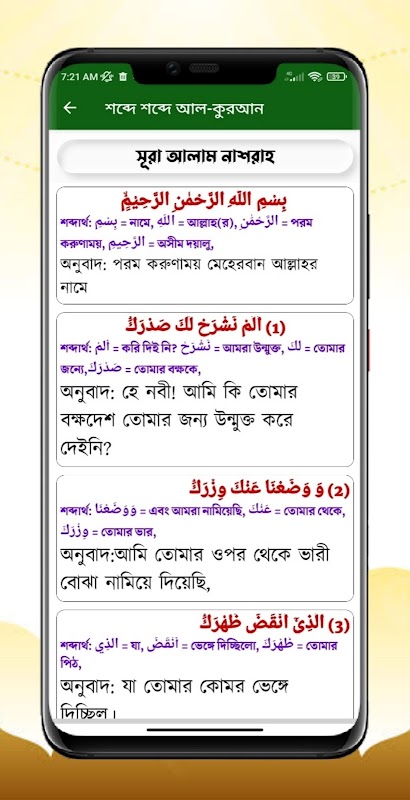 7:21 AM
89
শব্দে শব্দে আল-কুরআন
সূরা আলাম নাশরাহ
بِسْمِ اللّٰهِ الرَّحْمٰنِ الرَّحِيْمِ
শব্দার্থ: بِسْمِ = নামে, اللّٰهِ = আল্লাহ(র), الرَّحْمٰنِ = পরম
করুণাময়, الرَّحِيمِ = অসীম দয়ালু,
অনুবাদ: পরম করুণাময় মেহেরবান আল্লাহর
নামে
(1) اَلَمْ نَشْرَحْ لَكَ صَدْرَكَۙ
শব্দার্থ: اَلَمْ = করি দিই নি? نَشْرَحْ = আমরা উন্মুক্ত, لَكَ = তোমার
জন্যে, صَدْرَكَ = তোমার বক্ষকে,
অনুবাদ: হে নবী! আমি কি তোমার
বক্ষদেশ তোমার জন্য উন্মুক্ত করে
দেইনি?
(2) وَ وَضَعْنَا عَنْكَ وِزْرَكَۙ
শব্দার্থ: وَوَضَعْنَا = এবং আমরা নামিয়েছি, عَنْكَ = তোমার থেকে,
وِزْرَكَ = তোমার ভার,
অনুবাদ:আমি তোমার ওপর থেকে ভারী
বোঝা নামিয়ে দিয়েছি,
(3) الَّذِیْۤ اَنْقَضَ ظَهْرَكَۙ
শব্দার্থ: الَّذِي = যা, أَنْقَضَ = ভেঙ্গে দিচ্ছিলো, ظَهْرَكَ = তোমার
পিঠ,
অনুবাদ: যা তোমার কোমর ভেঙ্গে
দিচ্ছিল।